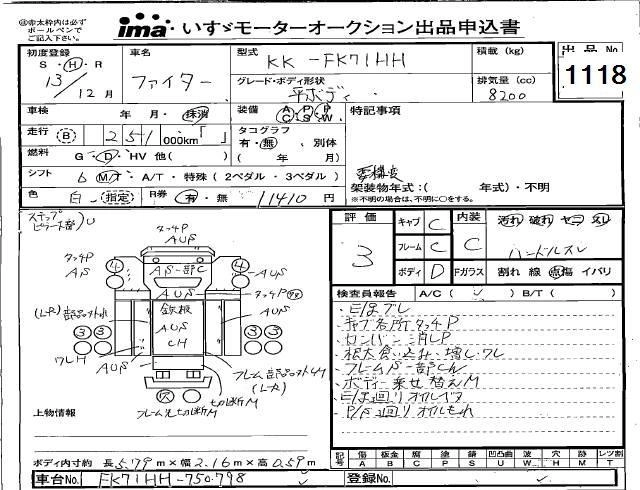 ㊟赤太枠内は必ず
ボールペンで
ご記入下さい。
ima いすゞモーターオークション出品申込書
初度登録
S・H・R
13/12月
車名
ファイター
型式
KK-FK71HH
積載 (kg)
出品No
1118
グレード・ボディ形状
平ボディ
排気量 (cc)
8200
車検 年・月・抹消
装備 A/C P/S P/W
特記事項
走行 B 251 000km「 」
タコグラフ
有・無・別体
( 年 月)
燃料 G・D・HV 他( )
シフト 6 M/T・A/T・特殊 (2ペダル・3ペダル)
架装物年式:( 年式)・不明
※不明の場合は、不明に○をする。
色 白・指定
R券 有・無 11410円
ステップ
ピラー下部)U
評価
3
キャブ C
フレーム C
ボディ D
内装
C
汚れ 破れ ヤニ スレ
ハンドルスレ
Fガラス 割れ 線 点傷 イバリ
検査員報告 A/C( ✓ ) B/T( )
E/gブレ
キャブ各所タッチP
ロンパン消しP
根太食い込み、増しワレ
フレーム一部Cん
ボディー乗せ替えM
E/g廻りオイルベタ
P/S廻りオイルもれ
タッチP
AUS
AS
④
④
AS一部C
AUS
AUS
タッチP
(L-R)
鉄板
AUS
AUS
CH
③③
③③
ワレH
AUS
(L-R)
切断M
上物情報
ボディ内寸約 長5.79m×幅2.16m×高0.59m
記号 傷A 板金B 腐C 塗P 錆S 凹凸曲U 波W 穴H 跡M レツ割T
車台No. FK71HH-750798
登録No.